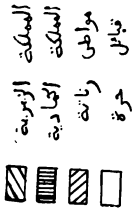 المملكة الزيرية
المملكة الحمادية
مواطن زناتة
قبائل حرة